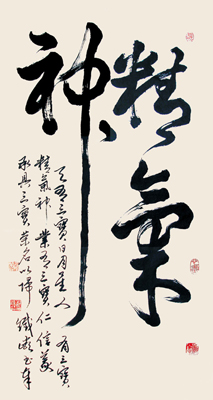 精氣
神
天有三寶日月星人有三寶
精氣神業有三寶仁信義
具三寶榮名以歸
鐵